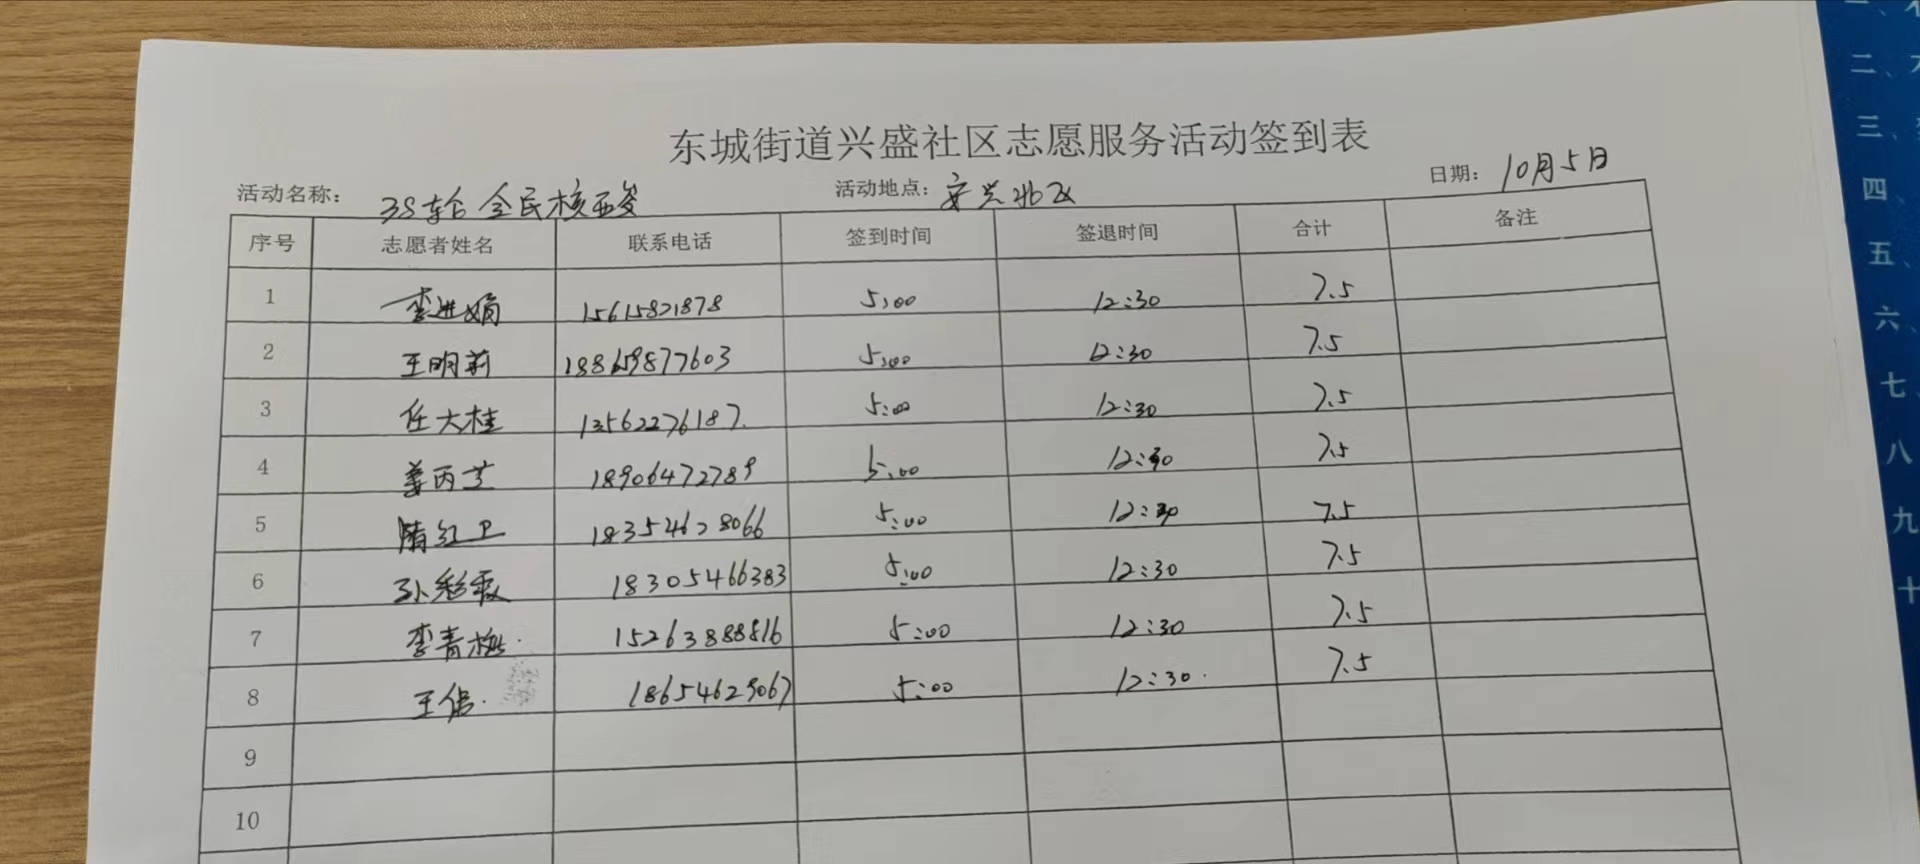 东城街道兴盛社区志愿服务活动签到表
活动名称： 38轮全民核酸 活动地点： 安兴北区 日期： 10月5日
序号 志愿者姓名 联系电话 签到时间 签退时间 合计 备注
1 李进娟 15615821878 5:00 12:30 7.5
2 王明莉 18865987603 5:00 12:30 7.5
3 任大桂 13562276187. 5:00 12:30 7.5
4 姜丙芝 18906472789 5:00 12:30 7.5
5 隋红卫 18354628066 5:00 12:30 7.5
6 孙彩霞 18305466383 5:00 12:30 7.5
7 李青梅. 15263888816 5:00 12:30 7.5
8 王侣. 18654629067 5:00 12:30. 7.5
9
10
二、
三、
四、
五、
六、
七、
八
九
十